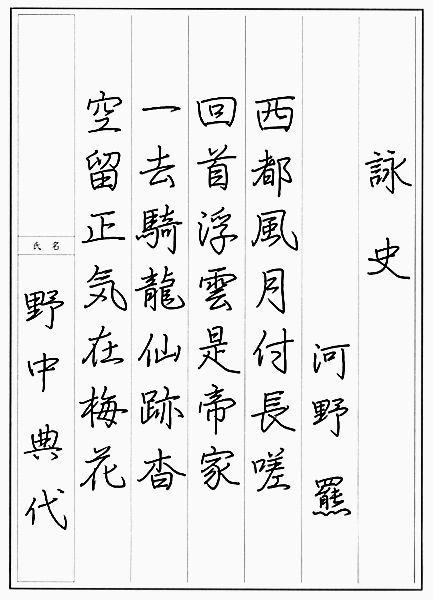 詠史
河野羆
西都風月付長嗟
回首浮雲是帝家
一去騎龍仙跡杳
空留正気在梅花
氏名
野中典代